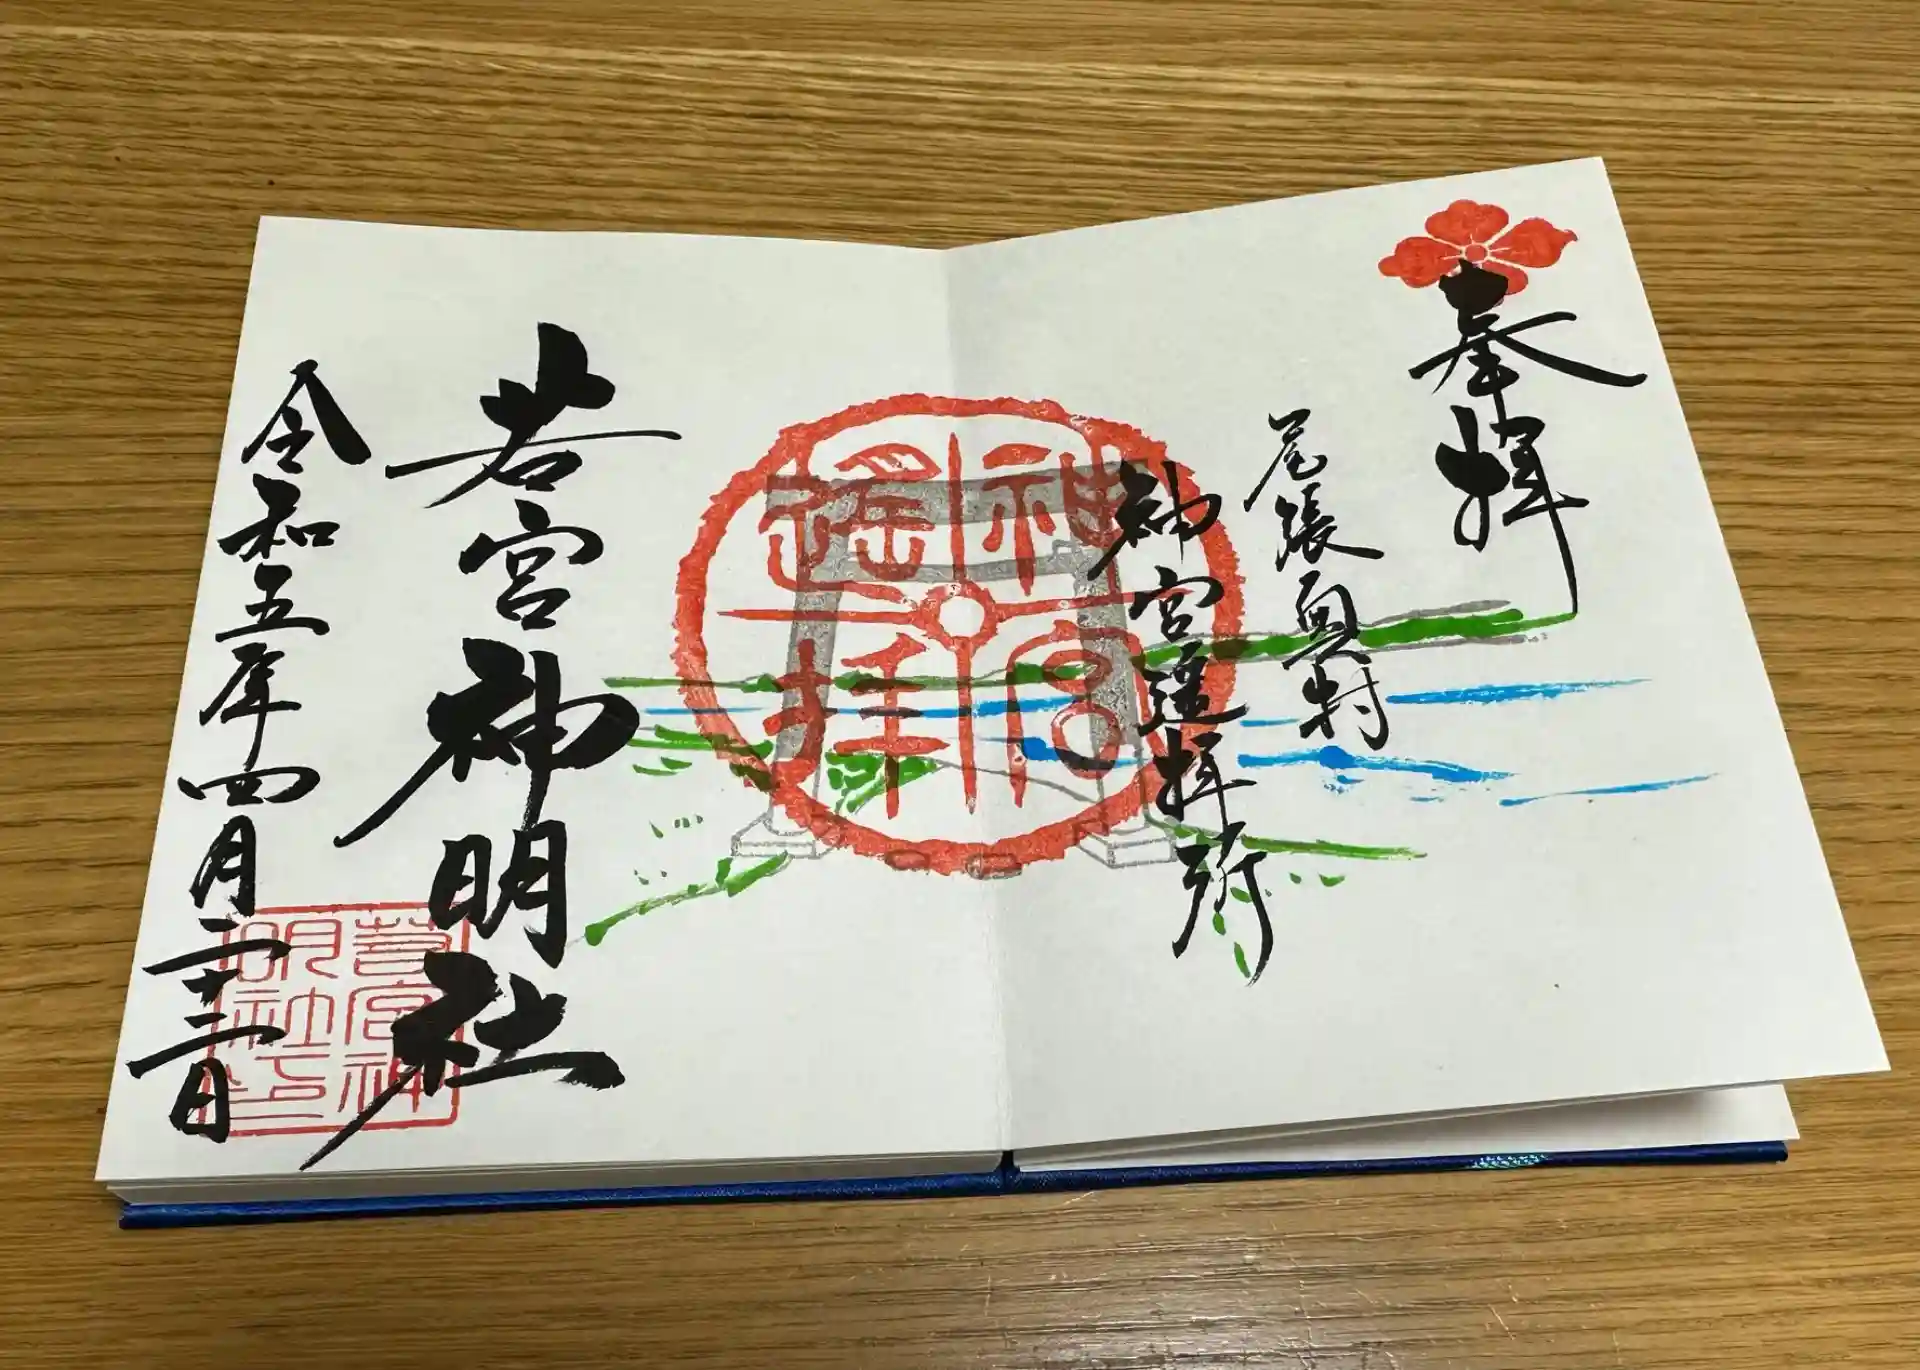 奉拝
尾張奥村
神宮遥拝所
神宮
遥拝
若宮神明社
若宮神
明社印
令和五年四月二十三日